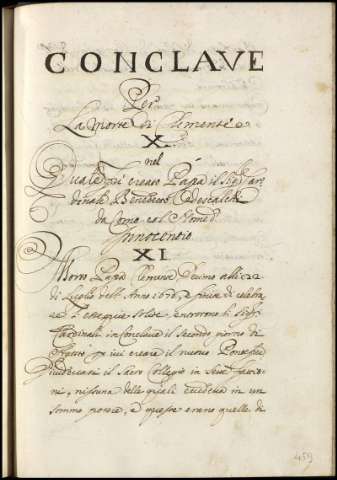 CONCLAVE
Per
La morte di Clemente
X
nel
Quale fù creato Papa il Sig.r Car
dinale Benedetto Odescalchi
da Como col Nome d'
Innocentio
XI
Morto Papa Clemente Decimo alli 22
di Luglio dell'Anno 1676, e finite di celebra
re l'esequie solite, entrorono li Sig.ri
Cardinali in Conclave il secondo giorno di
Agosto p ivi creare il nuovo Pontefice
il Sacro Collegio in fattio
ni, nissuna delle quali eccedeva in un
sommo potere, e queste erano quelle di
459